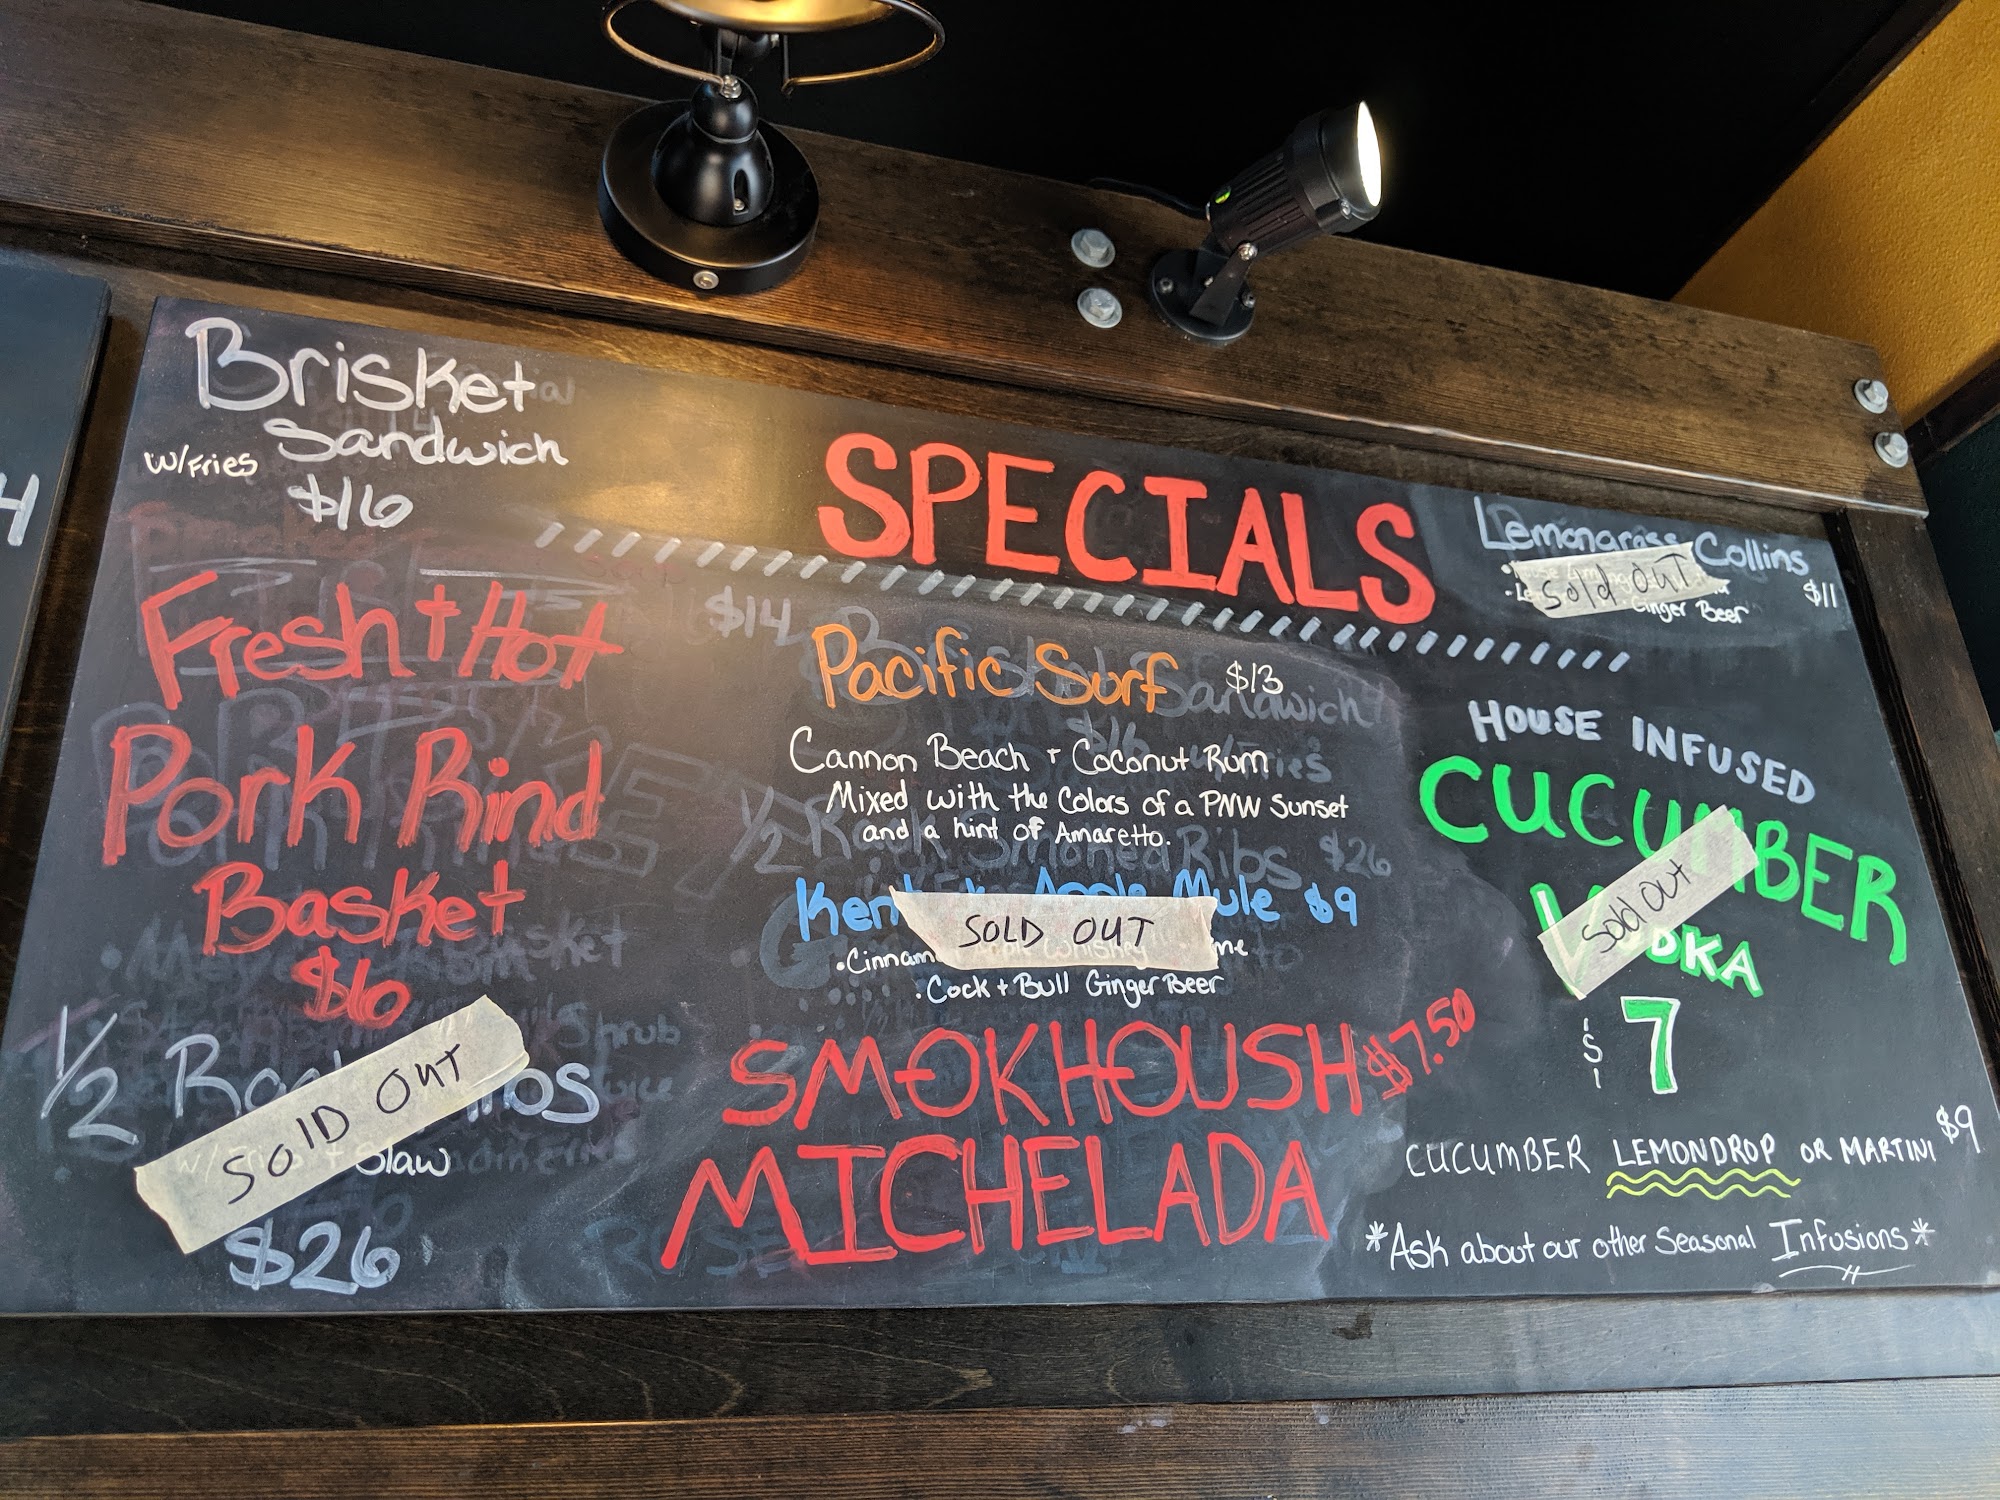 Brisket
Sandwich
W/Fries
$16
Fresh + Hot
Pork Rind
Basket
$6
1/2
SOLD OUT
Slaw
$26
SPECIALS
$14
Pacific Surf $13
Cannon Beach + Coconut Rum
Mixed with the Colors of a PNW Sunset
and a hint of Amaretto.
Mule $9
SOLD OUT
Cock + Bull Ginger Beer
SMOKHOUSH $7.50
MICHELADA
Lemongrass Collins
Sold OUT
$11
Ginger Beer
HOUSE INFUSED
CUCUMBER
VODKA
Sold OUT
$7
CUCUMBER LEMONDROP OR MARTINI $9
*Ask about our other Seasonal Infusions*
4